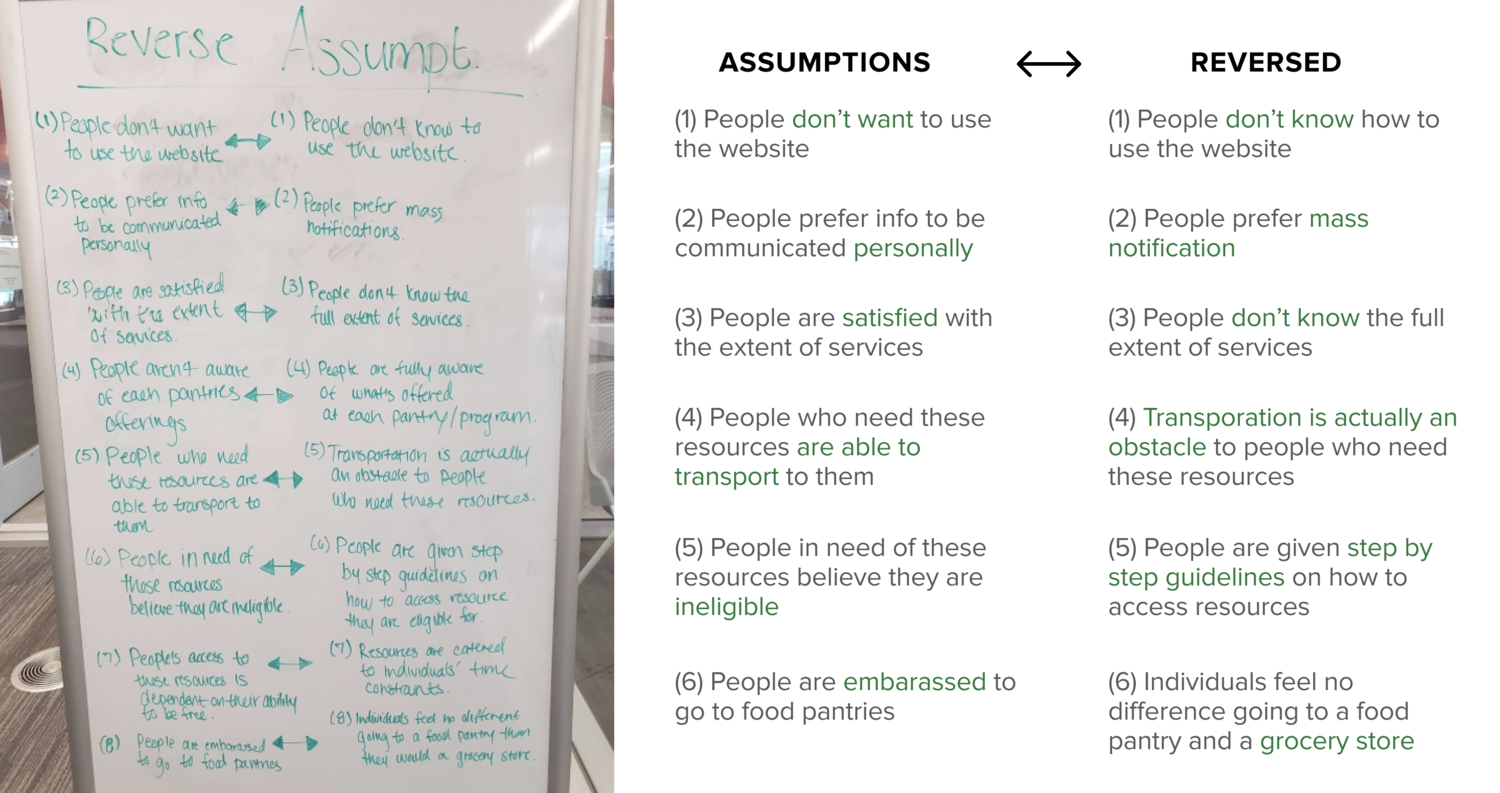 Reverse Assumpt.
(1) People don't want
to use the website
(1) People don't know to
use the website.
(2) People prefer info
to be communicated
personally
(2) People prefer mass
notifications.
(3) People are satisfied
with the extent
of services.
(3) People don't know the
full extent of services.
(4) People aren't aware
of each pantries
offerings
(4) People are fully aware
of what's offered
at each pantry/program.
(5) People who need
these resources are
able to transport to
them
(5) Transportation is actually
an obstacle to people
who need these resources.
(6) People in need of
these resources
believe they are ineligible.
(6) People are given step
by step guidelines on
how to access resource
they are eligible for.
(7) People's access to
these resources is
dependent on their ability
to be free.
(7) Resources are catered
to individuals' time
constraints.
(8) People are embarrased
to go to food pantries
(8) Individuals feel no different
going to a food pantry than
they would a grocery store.
ASSUMPTIONS
REVERSED
(1) People don't want to use
the website
(1) People don't know how to
use the website
(2) People prefer info to be
communicated personally
(2) People prefer mass
notification
(3) People are satisfied with
the extent of services
(3) People don't know the full
extent of services
(4) People who need these
resources are able to
transport to them
(4) Transporation is actually an
obstacle to people who need
these resources
(5) People in need of these
resources believe they are
ineligible
(5) People are given step by
step guidelines on how to
access resources
(6) People are embarassed to
go to food pantries
(6) Individuals feel no
difference going to a food
pantry and a grocery store